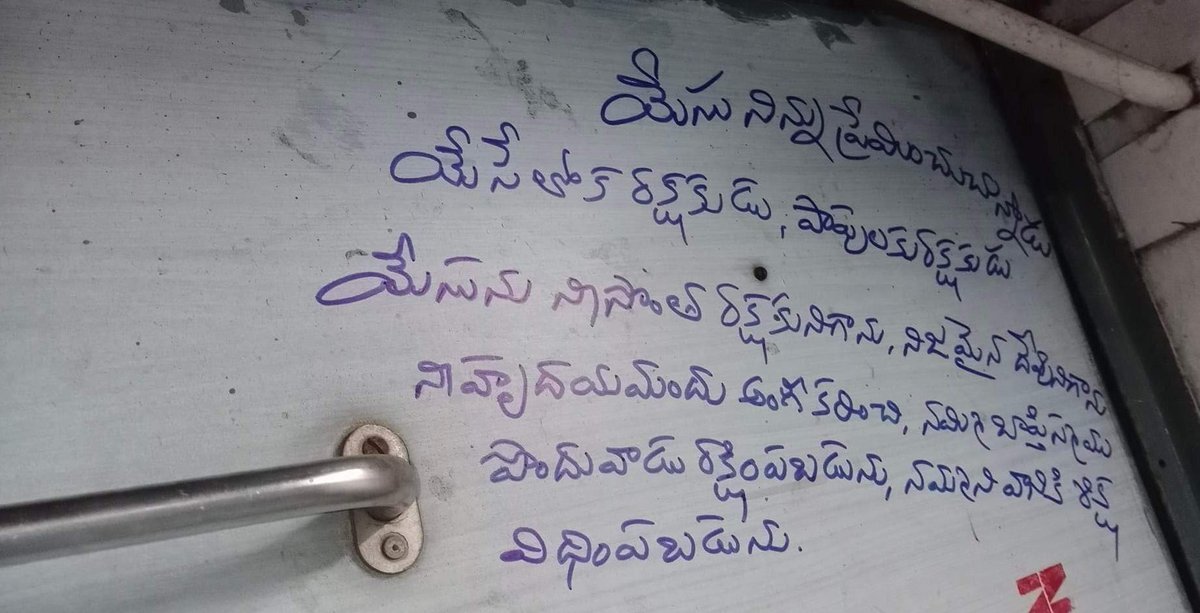 యేసు నిన్ను ప్రేమించుచున్నాడు
యేసే లోక రక్షకుడు, పాపులకు రక్షకుడు
యేసును నీ సొంత రక్షకునిగాను, నిజమైన దేవునిగాను
నీ హృదయమందు అంగీకరించి, నమ్మి బాప్తిస్మము
పొందువాడు రక్షింపబడును, నమ్మని వానికి శిక్ష
విధింపబడును.
N